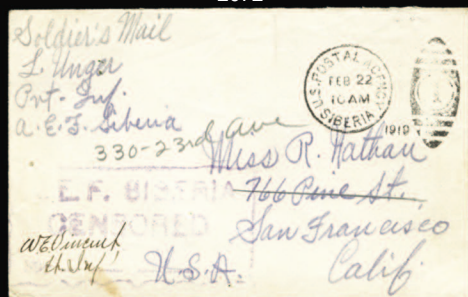 Soldier's Mail
L. Unger
Pvt- Inf.
A.E.F. Siberia
U.S. POSTAL AGENCY
FEB 22
10 AM
1919
SIBERIA
330-23rd Ave
Miss R. Nathan
766 Pine St.,
San Francisco
Calif.
U.S.A.
E.F. SIBERIA
CENSORED